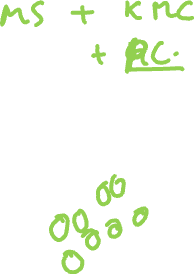 MS + KMC
+ RC.